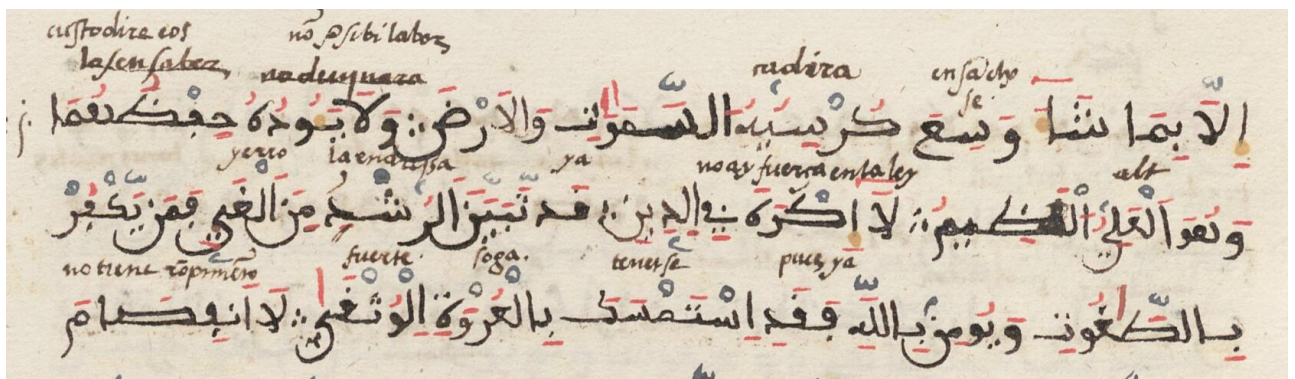 custodire eos nõ sibi labor
la sen saber no duquara cadira ensãcho
se
الَّا بِمَا شَا وَسِعَ كُرْسِيُّهُ السَّمَوَاتِ وَالَارْضَ ؞ وَلَا يَـُٔودُهُ حِفْظُهُمَا
yerro la endressa ya no ay fuerça en la ley alt
وَهُوَ الْعَلِيُّ الْعَظِيمُ ؞ لَا إِكْرَهَ فِي الدِينِ ؞ قَد تَّبَيَّنَ الرُّشْدُ مِنَ الْغَيِّ فَمَنْ يَّكْفُرْ
no tiene rõpimẽto fuerte. soga. tenerse pues ya
بِالطَّغُوتِ وَيُومِنْ بِاللَّهِ فَقَدِ اسْتَمْسَكَ بِالْعُرْوَةِ الْوُثْقَى ؞ لَا انفِصَامَ